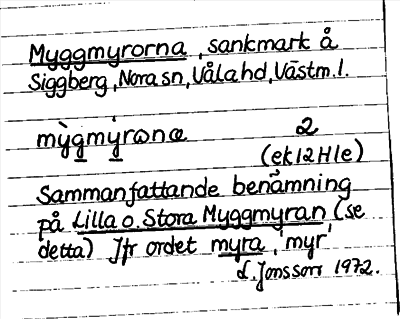 Myggmyrorna, sankmark å
Siggberg, Nora sn, Våla hd, Västm. l.
mỳgmýrona 2
(ek 12 H 1e)
Sammanfattande benämning
på Lilla o. Stora Myggmyran (se
detta) Jfr ordet myra 'myr'
L. Jonsson 1972.